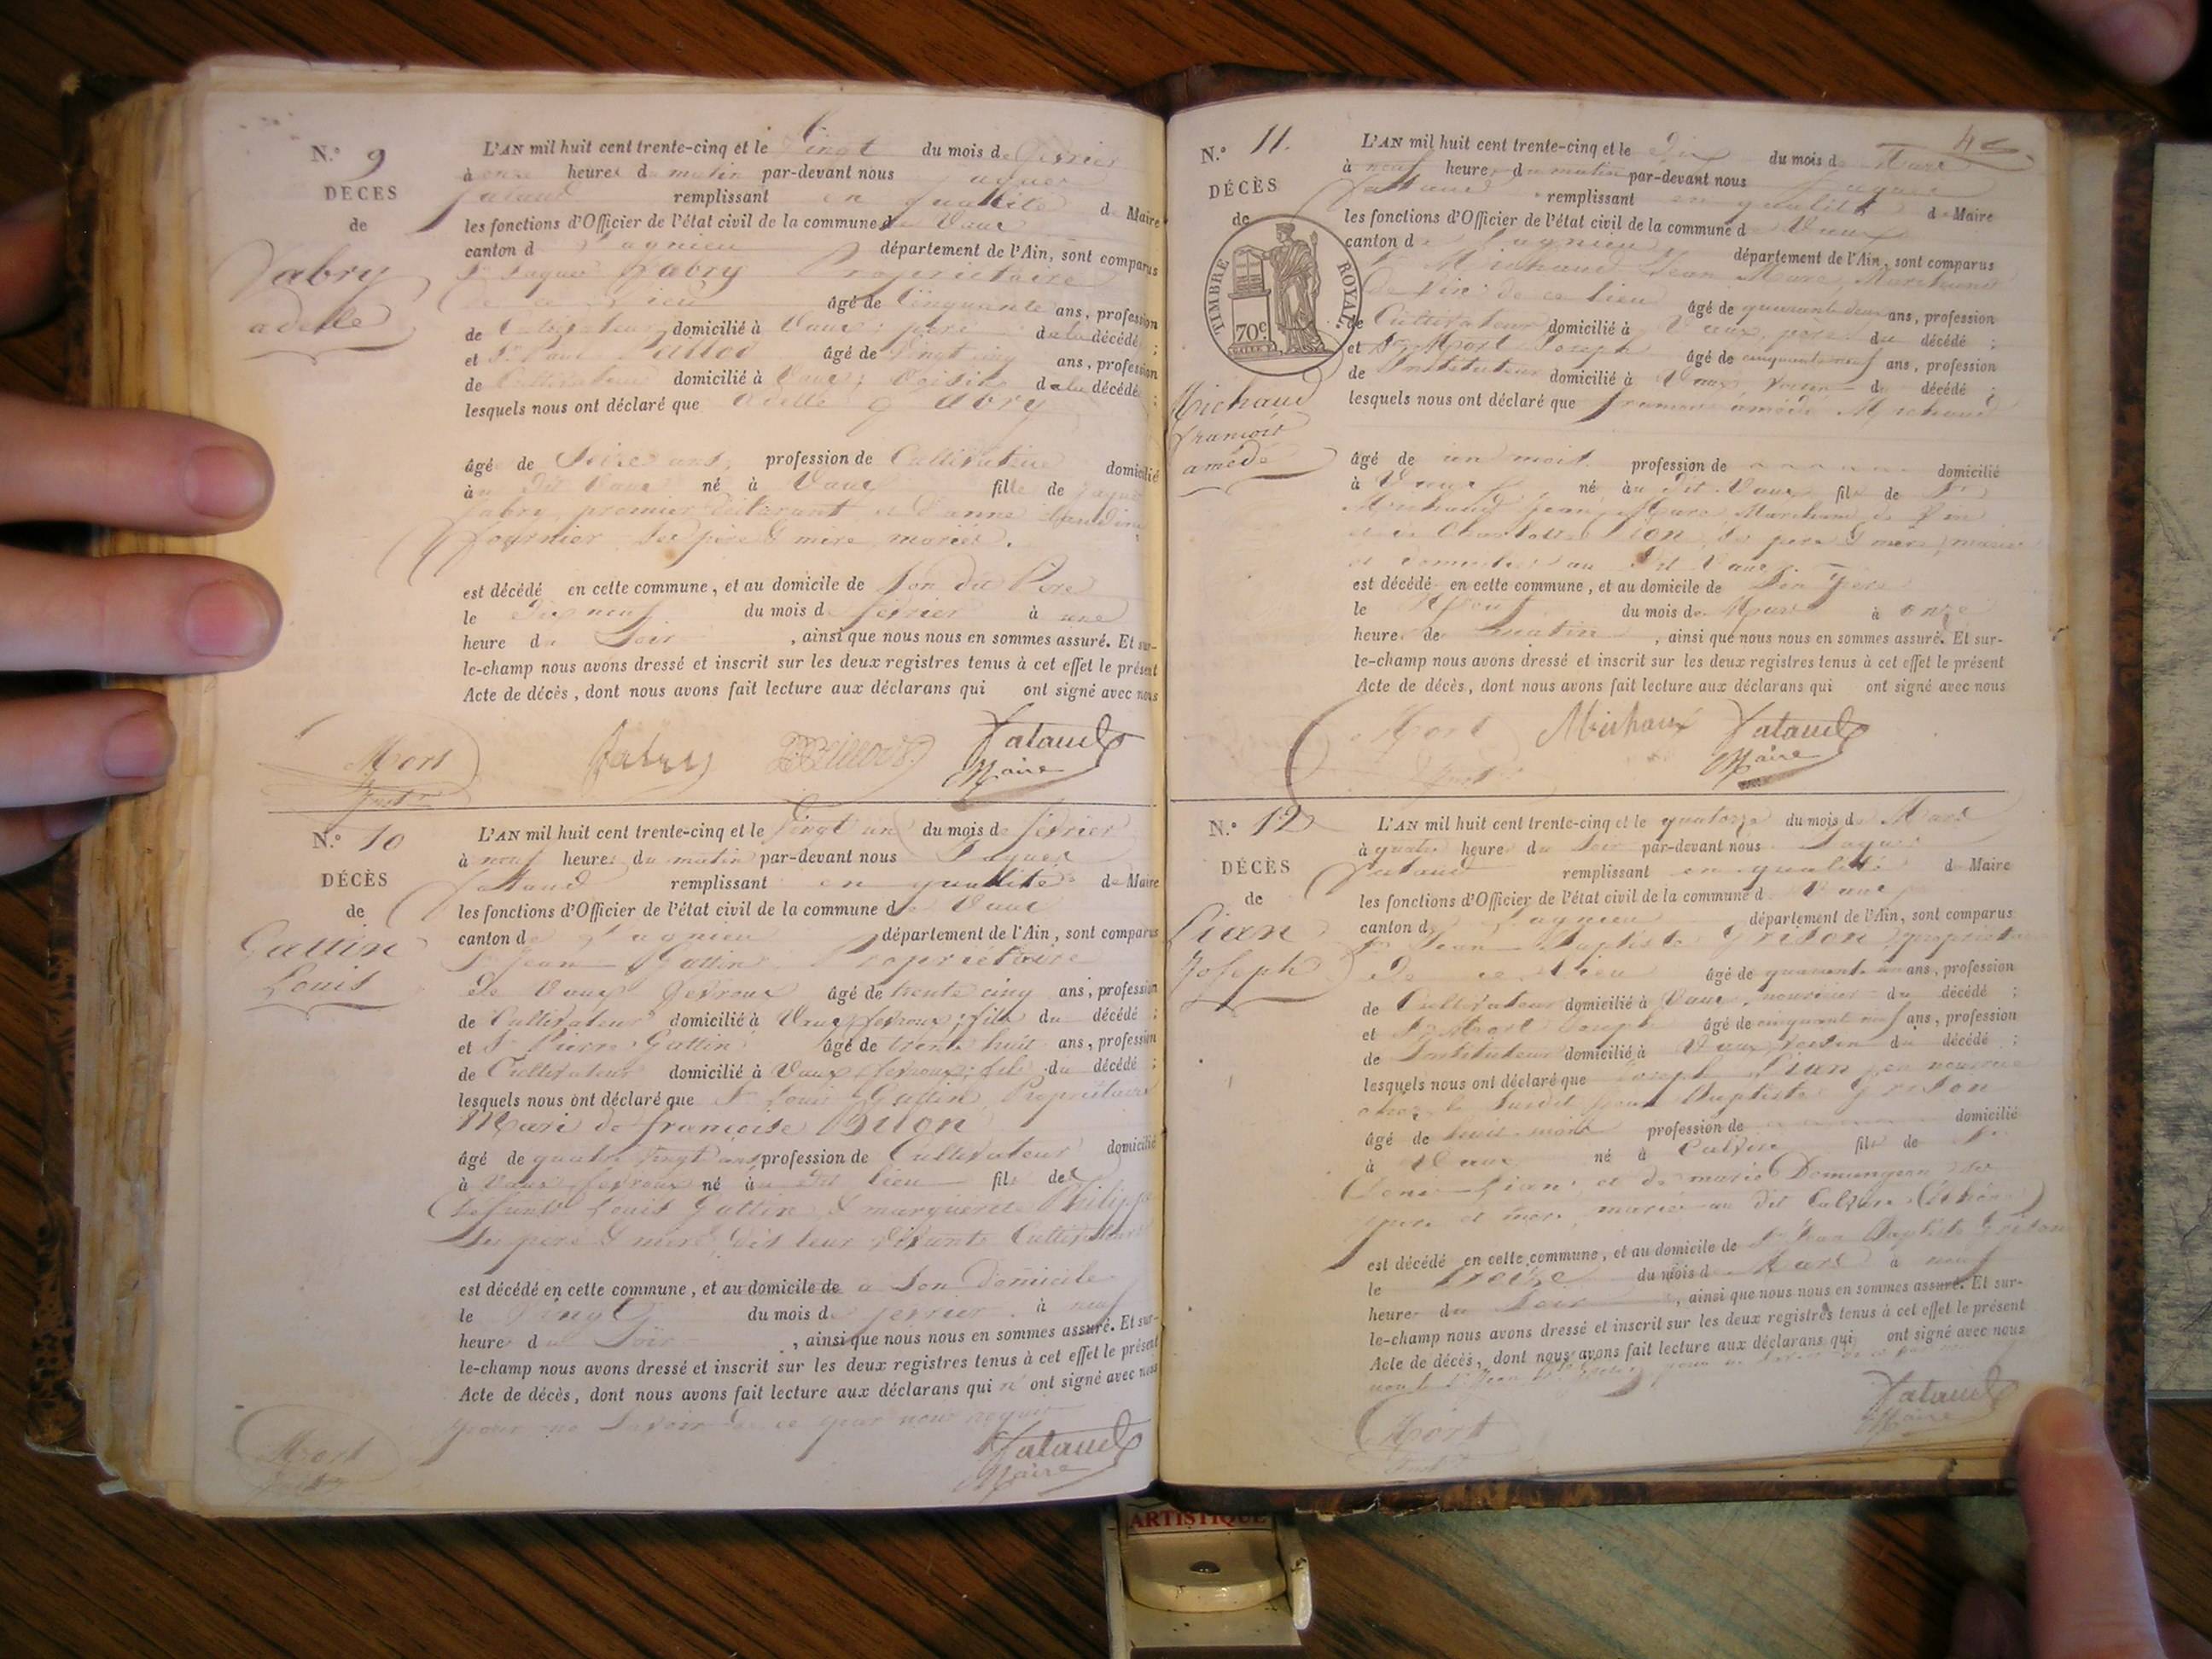 N.° 9
DÉCÈS
de
Jabry
adelle
L'AN mil huit cent trente-cinq et le vingt du mois de février
à onze heures du matin par-devant nous Jaques
fataud remplissant en qualité de Maire
les fonctions d'Officier de l'état civil de la commune de Vaux
canton de Lagnieu département de l'Ain, sont comparus
Sr Jaques Jabry Propriétaire
de ce lieu âgé de cinquante ans, profession
de Cultivateur domicilié à Vaux, père de la décédé ;
et Sr Paul âgé de vingt cinq ans, profession
de Cultivateur domicilié à Vaux, voisin de la décédé ;
lesquels nous ont déclaré que adelle Jabry
âgé de seize ans, profession de Cultivatrice domicilié
à u dit Vaux né à Vaux fille de Jaques
Jabry, premier déclarant et d'anne
fournier ses père & mère mariés.
est décédé en cette commune, et au domicile de son dit Père
le dix neuf du mois de février à une
heure du soir, ainsi que nous nous en sommes assuré. Et sur-
le-champ nous avons dressé et inscrit sur les deux registres tenus à cet effet le présent
Acte de décès, dont nous avons fait lecture aux déclarans qui ont signé avec nous
Mort Jabry fataud
Maire
N.° 10
DÉCÈS
de
Gattin
Louis
L'AN mil huit cent trente-cinq et le vingt un du mois de février
à neuf heures du matin par-devant nous Jaques
fataud remplissant en qualité de Maire
les fonctions d'Officier de l'état civil de la commune de Vaux
canton de Lagnieu département de l'Ain, sont comparus
Sr Jean Gattin Propriétaire
de Vaux fevroux âgé de trente cinq ans, profession
de Cultivateur domicilié à Vaux fevroux; fils du décédé ;
et Sr Pierre Gattin âgé de trente huit ans, profession
de Cultivateur domicilié à Vaux fevroux; fils du décédé ;
lesquels nous ont déclaré que Sr Louis Gattin Propriétaire
Mari de françoise Bilon
âgé de quatre vingt ans profession de Cultivateur domicilié
à Vaux fevroux né au dit lieu fils des
defunts Louis Gattin & marguerite Philippe
ses père & mère, de leur vivants Cultivateurs
est décédé en cette commune, et au domicile de a son domicile
le vingt du mois de février à neuf
heures du soir, ainsi que nous nous en sommes assuré. Et sur-
le-champ nous avons dressé et inscrit sur les deux registres tenus à cet effet le présent
Acte de décès, dont nous avons fait lecture aux déclarans qui n'ont signé avec nous
pour ne savoir de ce par nous requis
Mort fataud
Maire
46
N.° 11.
DÉCÈS
de
TIMBRE ROYAL
70c
Michaud
françois
amédé
L'AN mil huit cent trente-cinq et le dix du mois de Mars
à neuf heures du matin par-devant nous Jaques
fataud remplissant en qualité de Maire
les fonctions d'Officier de l'état civil de la commune de Vaux
canton de Lagnieu département de l'Ain, sont comparus
Sr Michaud Jean Marc, Marchand
de vin de ce lieu âgé de quarante deux ans, profession
de Cultivateur domicilié à Vaux, père du décédé ;
et Sr Mort Joseph âgé de cinquante neuf ans, profession
de Instituteur domicilié à Vaux voisin du décédé ;
lesquels nous ont déclaré que françois amédé Michaud
âgé de un mois profession de domicilié
à Vaux né au dit Vaux fils de Sr
Michaud Jean Marc Marchand de vin
et de Charlotte ses père & mère, mariés
et domiciliés au dit Vaux
est décédé en cette commune, et au domicile de son Père
le Neuf du mois de Mars à onze
heures de matin, ainsi que nous nous en sommes assuré. Et sur-
le-champ nous avons dressé et inscrit sur les deux registres tenus à cet effet le présent
Acte de décès, dont nous avons fait lecture aux déclarans qui ont signé avec nous
Mort Michaud fataud
Maire
N.° 12
DÉCÈS
de
Lian
Joseph
L'AN mil huit cent trente-cinq et le quatorze du mois de Mars
à quatre heures du soir par-devant nous Jaques
fataud remplissant en qualité de Maire
les fonctions d'Officier de l'état civil de la commune de Vaux
canton de Lagnieu département de l'Ain, sont comparus
Sr Jean Baptiste Grison, propriétaire
de ce lieu âgé de quarante un ans, profession
de Cultivateur domicilié à Vaux, nourricier du décédé ;
et Sr Mort Joseph âgé de cinquante neuf ans, profession
de Instituteur domicilié à Vaux voisin du décédé ;
lesquels nous ont déclaré que Joseph Lian, en nourrice
chez le susdit Jean Baptiste Grison
âgé de huit mois profession de domicilié
à Vaux né à Caluire fils de Sr
Lian et de marie Domungeon ses
père et mère, mariés au dit Caluire (Rhône)
est décédé en cette commune, et au domicile de Sr Jean Baptiste Grison
le treize du mois de Mars à neuf
heures du soir, ainsi que nous nous en sommes assuré. Et sur-
le-champ nous avons dressé et inscrit sur les deux registres tenus à cet effet le présent
Acte de décès, dont nous avons fait lecture aux déclarans qui ont signé avec nous
Mort fataud
Maire
ARTISTIQUE